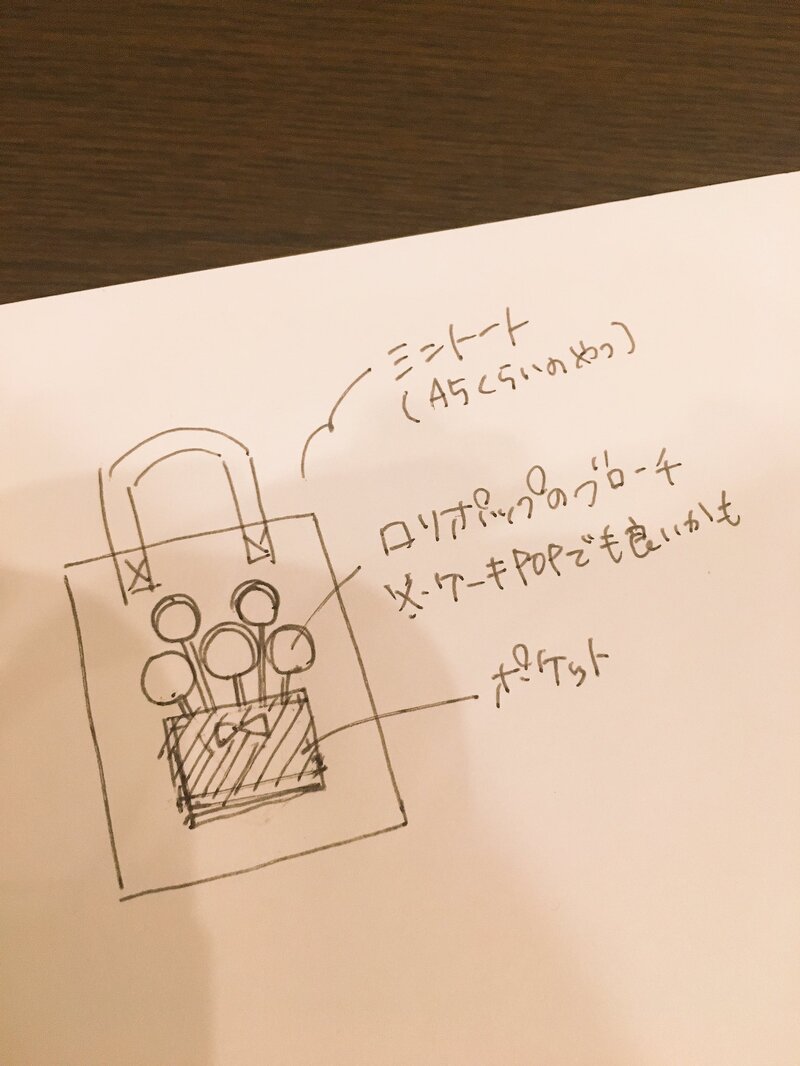 ミントート
(A5くらいのやつ)
ロリポップのブローチ
※ケーキPOPでも良いかも
ポケット